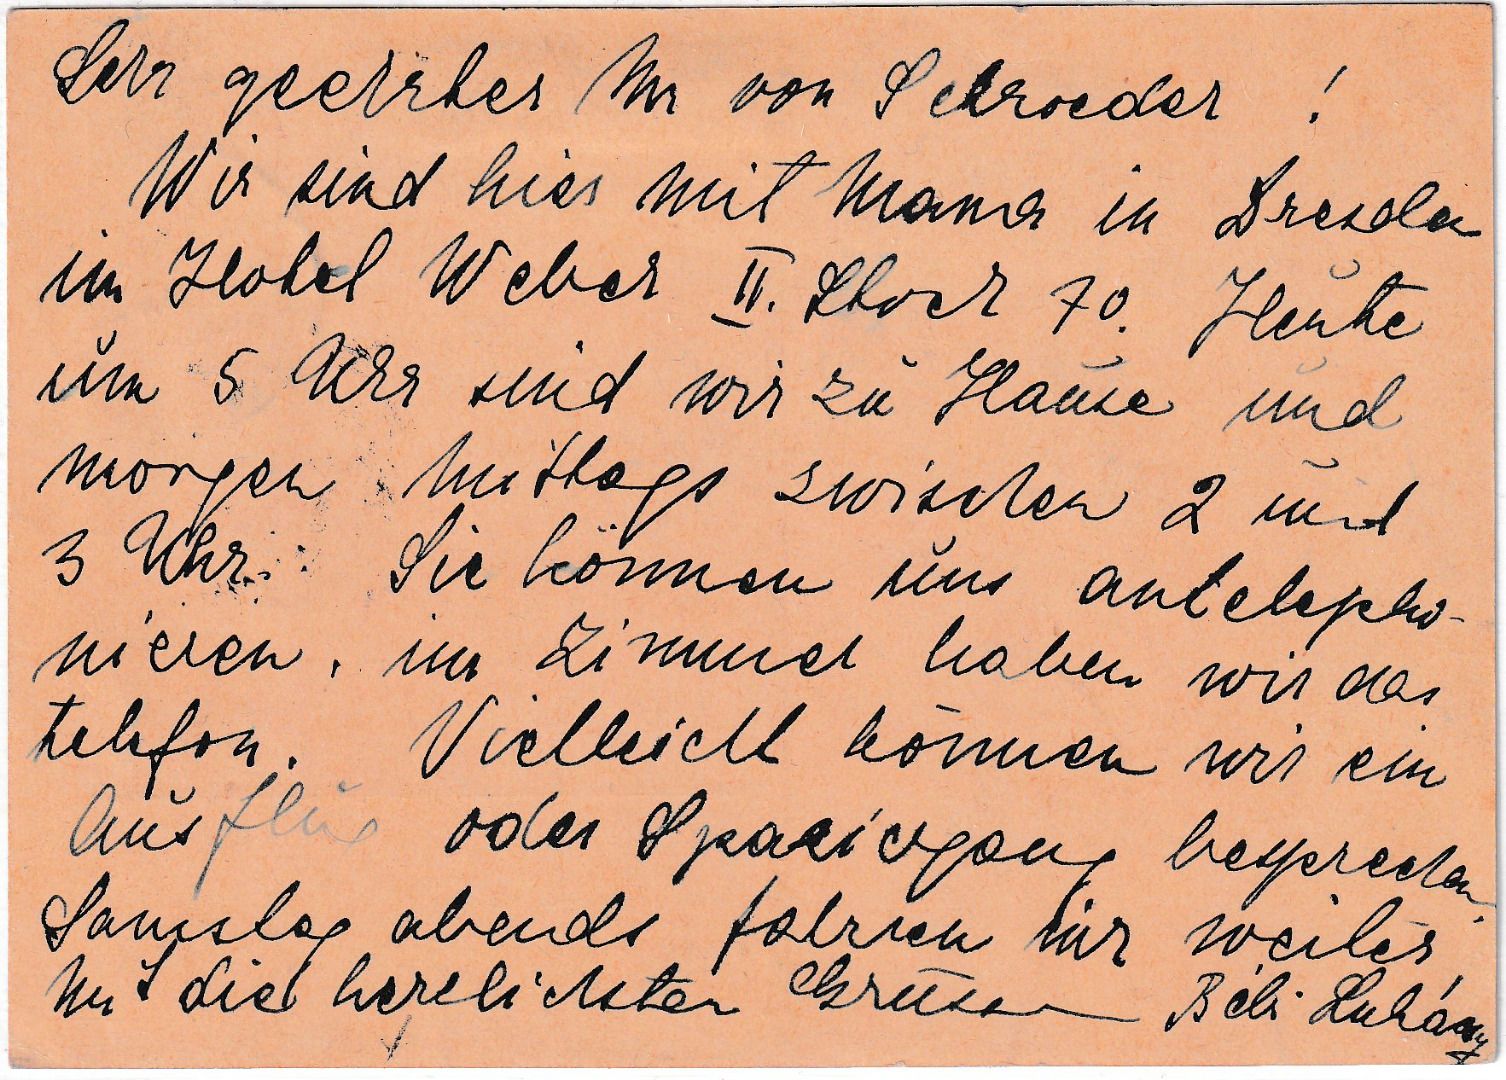 Sehr geehrter Mr von Schroeder!
Wir sind hier mit Mama in Dresden
im Hotel Weber II. Stock 70. Heute
um 5 Uhr sind wir zu Hause und
morgen Mittags zwischen 2 und
3 Uhr. Sie können uns antelepho-
nieren. im Zimmer haben wir das
telefon. Vielleicht können wir ein
Ausflug oder Spaziergang besprechen.
Samstag abends fahren wir weiter
Mit die herzlichsten Grüssen Béli